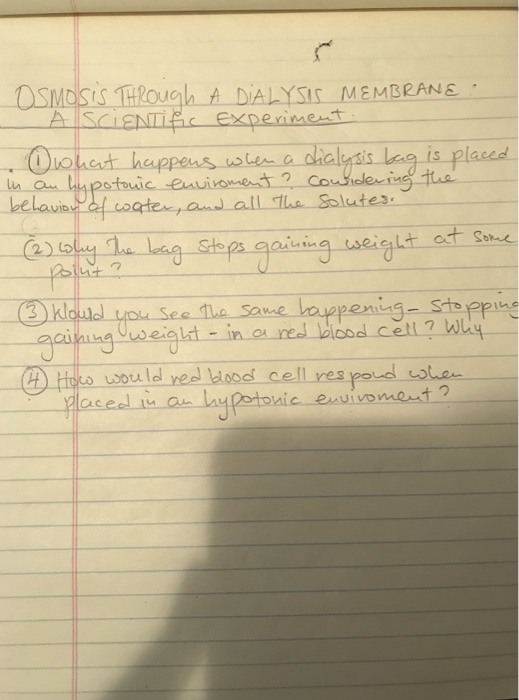 OSMOSIS THROUGH A DIALYSIS MEMBRANE:
A SCIENTIFIC EXPERIMENT.
① What happens when a dialysis bag is placed
in an hypotonic enviroment? Considering the
behavior of water, and all the solutes.
(2) Why the bag stops gaining weight at some
point?
③ Would you see the same happening - stopping
gaining weight - in a red blood cell? Why
④ How would red blood cell respond when
placed in an hypotonic enviroment?